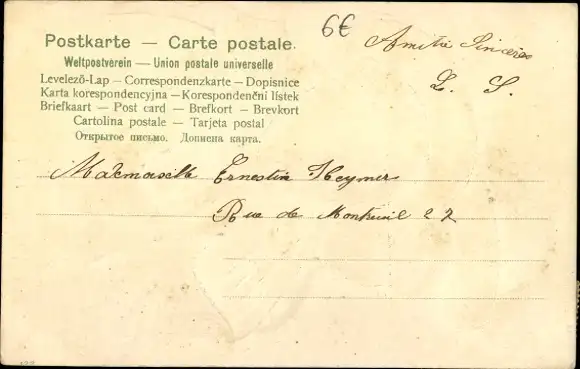 Postkarte — Carte postale.
Weltpostverein — Union postale universelle
Levelező-Lap — Correspondenzkarte — Dopisnice
Karta korespondencyjna — Korespondenční lístek
Briefkaart — Post card — Brefkort — Brevkort
Cartolina postale — Tarjeta postal
Открытое письмо. Дописна карта.
6€
Amitié Sincère
L. S.
Mademoiselle Ernestine Heymer
Rue de Montreuil 22